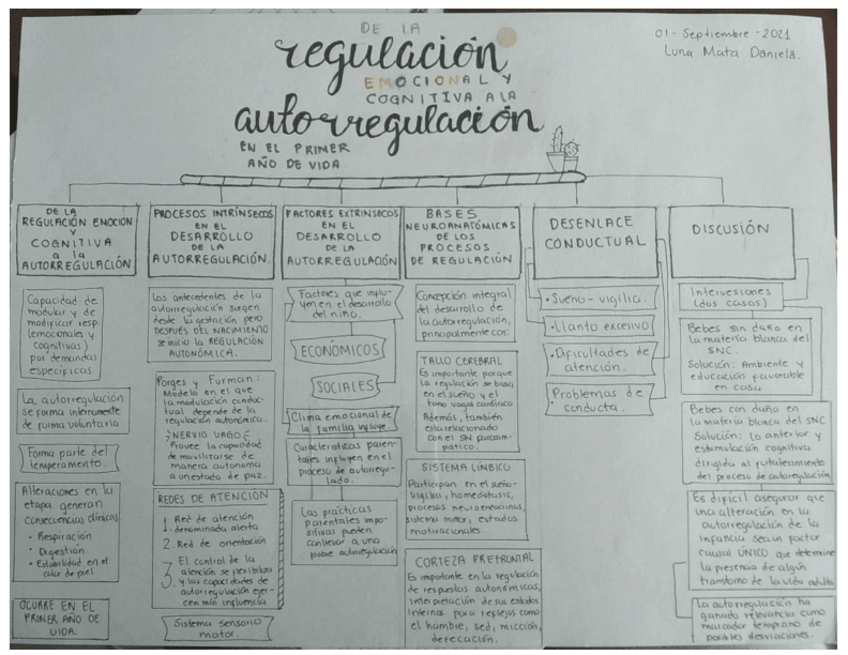 DE LA
regulación
EMOCIONAL Y
COGNITIVA A LA
autorregulación
EN EL PRIMER
AÑO DE VIDA
01 - Septiembre - 2021
Luna Mata Daniela.
DE LA
REGULACIÓN EMOCION
Y
COGNITIVA
a la
AUTORREGULACIÓN
Capacidad de
modular y de
modificar resp.
(emocionales y
cognitivas)
por demandas
específicas
La autorregulación
se forma internamente
de forma voluntaria
Forma parte del
temperamento.
Alteraciones en la
etapa generan
consecuencias clínicas:
• Respiración
• Digestión
• Estabilidad en el
color de piel
OCURRE EN EL
PRIMER AÑO DE
VIDA.
PROCESOS INTRÍNSECOS
EN EL
DESARROLLO
DE LA
AUTORREGULACIÓN.
Los antecedentes de la
autorregulación surgen
desde la gestación pero
DESPUÉS DEL NACIMIENTO
se inicia la REGULACIÓN
AUTONÓMICA.
Porges y Furman:
Modelo en el que
la modulación conduc-
tual depende de la
regulación autonómica.
NERVIO VAGO
Provee la capacidad
de movilizarse de
manera autonoma
a un estado de paz.
REDES DE ATENCIÓN
1. Red de atención
denominada alerta
2. Red de orientación
3. El control de la
atención se flexibiliza
y las capacidades de
autorregulación ejer-
cen min influencia
Sistema sensorio
motor.
FACTORES EXTRINSECOS
EN EL
DESARROLLO
DE LA
AUTORREGULACIÓN
Factores que influ-
yen en el desarrollo
del niño.
ECONÓMICOS
SOCIALES
Clima emocional de
la familia influye.
Características paren-
tales influyen en el
proceso de autorregu-
lado.
Las prácticas
parentales impo-
sitivas pueden
conllevar a una
pobre autorregulación
BASES
NEUROANATÓMICAS
DE LOS
PROCESOS
DE REGULACIÓN
Concepción integral
del desarrollo de
la autorregulación,
principalmente con:
TALLO CEREBRAL
Es importante porque
la regulación se basa
en el sueño y el
tono vagal cardiaco
Además, también
esta relacionado
con el SN parasim-
pático.
SISTEMA LÍMBICO
Participan en el sueño-
vigilia, homeostasis,
procesos neuroendocrinos,
sistema motor, estados
motivacionales
CORTEZA PREFRONTAL
Es importante en la regulación
de respuestas autonómicas,
interpretación de sus estados
internos para reflejos como
el hambre, sed, micción,
derecación.
DESENLACE
CONDUCTUAL
• Sueño-vigilia.
• Llanto excesivo
• Dificultades de
atención.
Problemas de
conducta.
DISCUSIÓN
Intervesiones
(dos casos)
Bebes sin daño en
la materia blanca del
SNC.
Solución: Ambiente y
educación favorable
en casa
Bebes con daño en
la materia blanca del SNC
Solución: Lo anterior y
estimulación cognitiva
dirigida al fortalecimiento
del proceso de autorregulación
Es difícil asegurar que
una alteración en la
autorregulación de la
infancia sea un factor
causal ÚNICO que determine
la presencia de algún
transtorno de la vida adulta
La autorregulación ha
ganado relevancia como
marcador temprano de
posibles desviaciones.